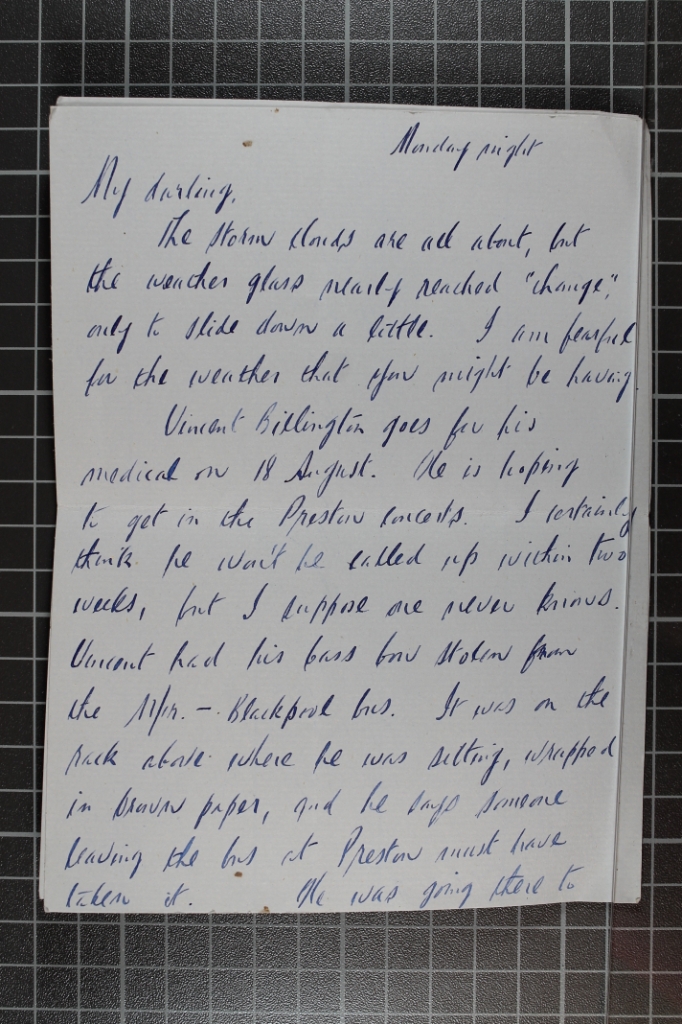 Monday night
My darling,
The storm clouds are all about, but
the weather glass nearly reached "change",
only to slide down a little. I am fearful
for the weather that you might be having.
Vincent Billington goes for his
medical on 18 August. He is hoping
to get in the Preston concerts. I certainly
think he won't be called up within two
weeks, but I suppose one never knows.
Vincent had his bass bow stolen from
the M/r. - Blackpool bus. It was on the
rack above where he was sitting, wrapped
in brown paper, and he says someone
leaving the bus at Preston must have
taken it. He was going there to